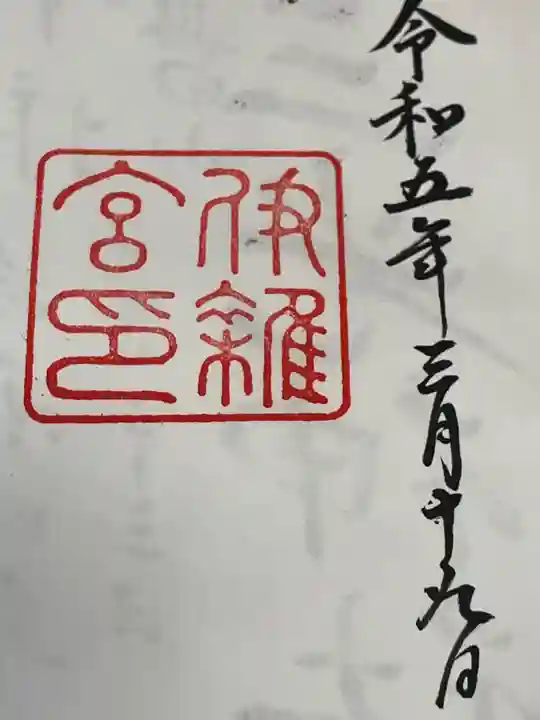 令和五年三月十九日
伊雜
宮印